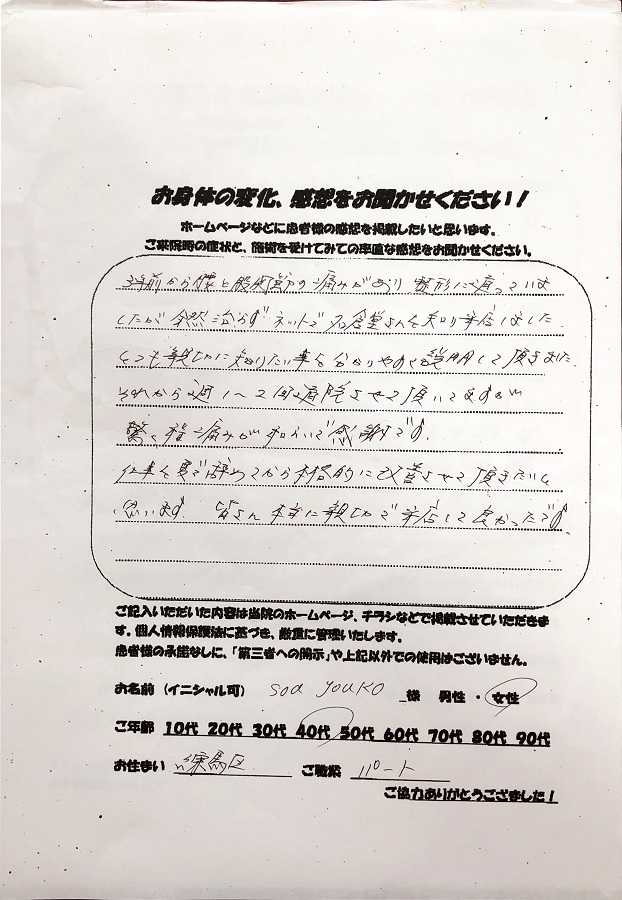 お身体の変化、感想をお聞かせください！
ホームページなどに患者様の感想を掲載したいと思います。
ご来院時の症状と、施術を受けてみての率直な感想をお聞かせください。
年前から腰と股関節の痛みがあり 整形に通っていま
したが 全然治らず ネットで 名倉堂さんを知り来店しました
とても親切に知りたい事を分かりやすく説明して頂きました
それから週1〜2回通院させて頂いてますが
驚く程痛みが和らいで感謝です.
仕事を夏で辞めてから本格的に改善させて頂きたいと
思います 皆さん 本当に親切で来店して良かったです.
ご記入いただいた内容は当院のホームページ、チラシなどで掲載させていただきま
す。個人情報保護法に基づき、厳重に管理いたします。
患者様の承諾なしに、「第三者への開示」や上記以外での使用はございません。
お名前（イニシャル可） soa youko 様 男性 ・ 女性
ご年齢 10代 20代 30代 40代 50代 60代 70代 80代 90代
お住まい 練馬区 ご職業 パート
ご協力ありがとうございました！